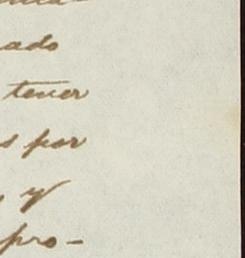 ado
tener
s por
y
pro-